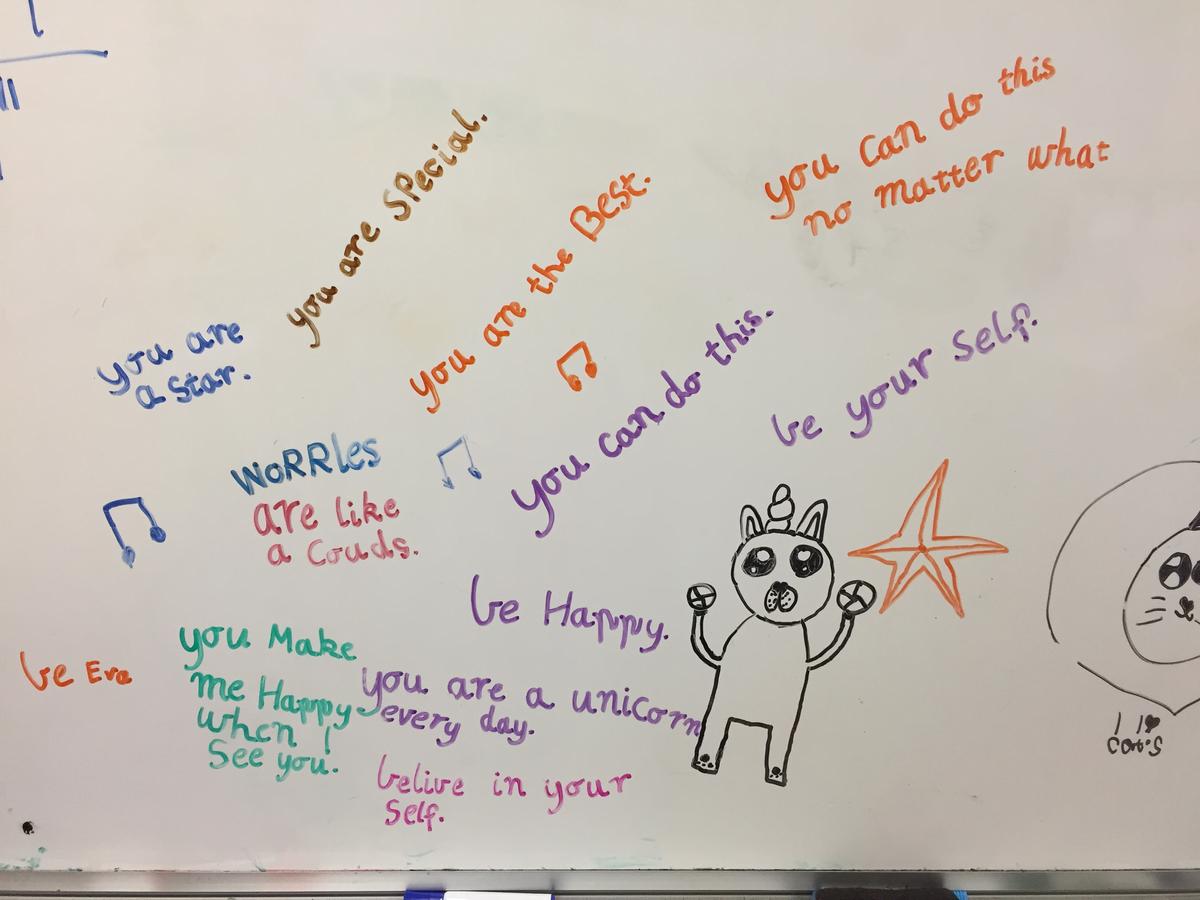 you are Special.
you can do this
no matter what
you are the Best.
you are
a star.
you can do this.
be your self.
WoRRles
are like
a Couds.
be Happy.
you Make
me Happy
when I
See you.
be Eve
you are a unicorn
every day.
belive in your
Self.